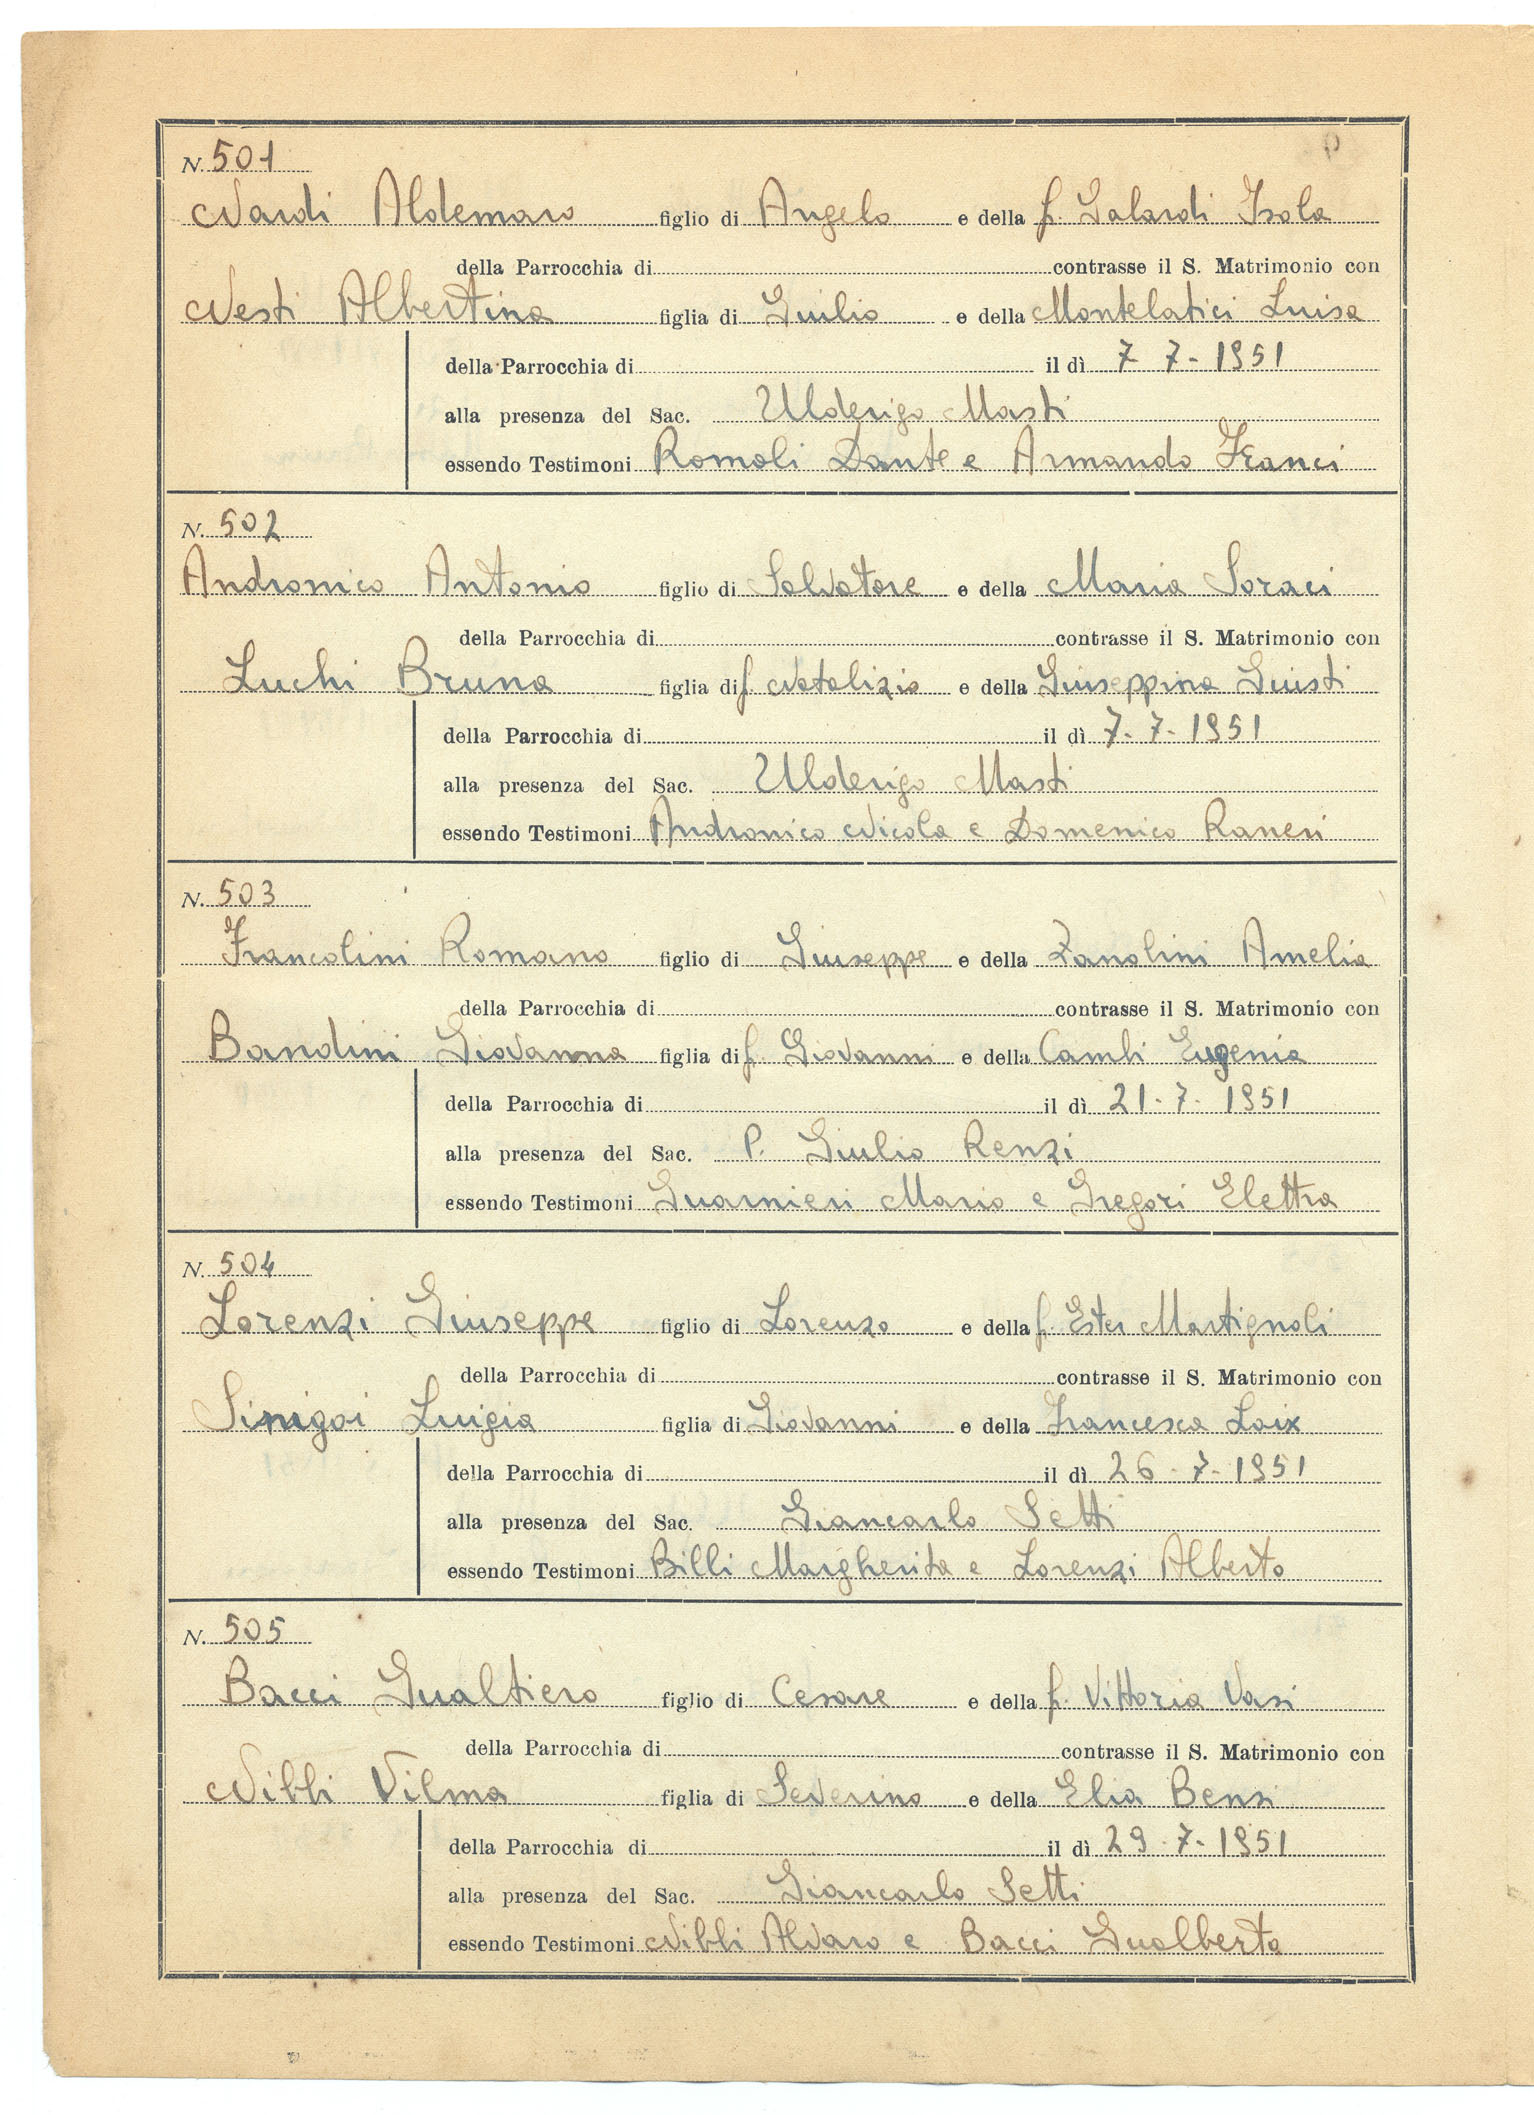 N. 501
Nardi Aldemaro figlio di Angelo e della f. Galardi Isola
della Parrocchia di contrasse il S. Matrimonio con
Nesti Albertina figlia di Guilio e della Montelatici Luisa
della Parrocchia di il dì 7-7-1951
alla presenza del Sac. Ulderigo Masti
essendo Testimoni Romoli Dante e Armando Franci
N. 502
Andronico Antonio figlio di Salvatore e della Maria Soraci
della Parrocchia di contrasse il S. Matrimonio con
Luchi Bruna figlia di f. Natalizio e della Giuseppina Giusti
della Parrocchia di il dì 7-7-1951
alla presenza del Sac. Ulderigo Masti
essendo Testimoni Andronico Nicola e Domenico Raneri
N. 503
Francolini Romano figlio di Giuseppe e della Zanolini Amelia
della Parrocchia di contrasse il S. Matrimonio con
Bandini Giovanna figlia di f. Giovanni e della Cambi Eugenia
della Parrocchia di il dì 21-7-1951
alla presenza del Sac. P. Giulio Renzi
essendo Testimoni Guarnieri Mario e Gregori Elettra
N. 504
Lorenzi Giuseppe figlio di Lorenzo e della f. Ester Martignoli
della Parrocchia di contrasse il S. Matrimonio con
Sinigoi Luigia figlia di Giovanni e della Francesca Loix
della Parrocchia di il dì 26-7-1951
alla presenza del Sac. Giancarlo Setti
essendo Testimoni Billi Margherita e Lorenzi Alberto
N. 505
Bacci Gualtiero figlio di Cesare e della f. Vittoria Vasi
della Parrocchia di contrasse il S. Matrimonio con
Nibbi Vilma figlia di Severino e della Elia Benzi
della Parrocchia di il dì 29-7-1951
alla presenza del Sac. Giancarlo Setti
essendo Testimoni Nibbi Alvaro e Bacci Gualberto